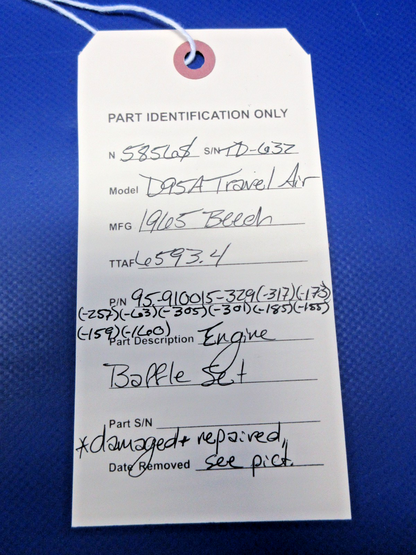 PART IDENTIFICATION ONLY
N 5856S S/N TD-632
Model D95A Travel Air
MFG 1965 Beech
TTAF 6593.4
P/N 95-910015-329(-317)(-173)
(-257)(-63)(-305)(-301)(-185)(-155)
(-159)(-160)
Part Description Engine
Baffle Set
Part S/N
*damaged + repaired,
Date Removed see pict.